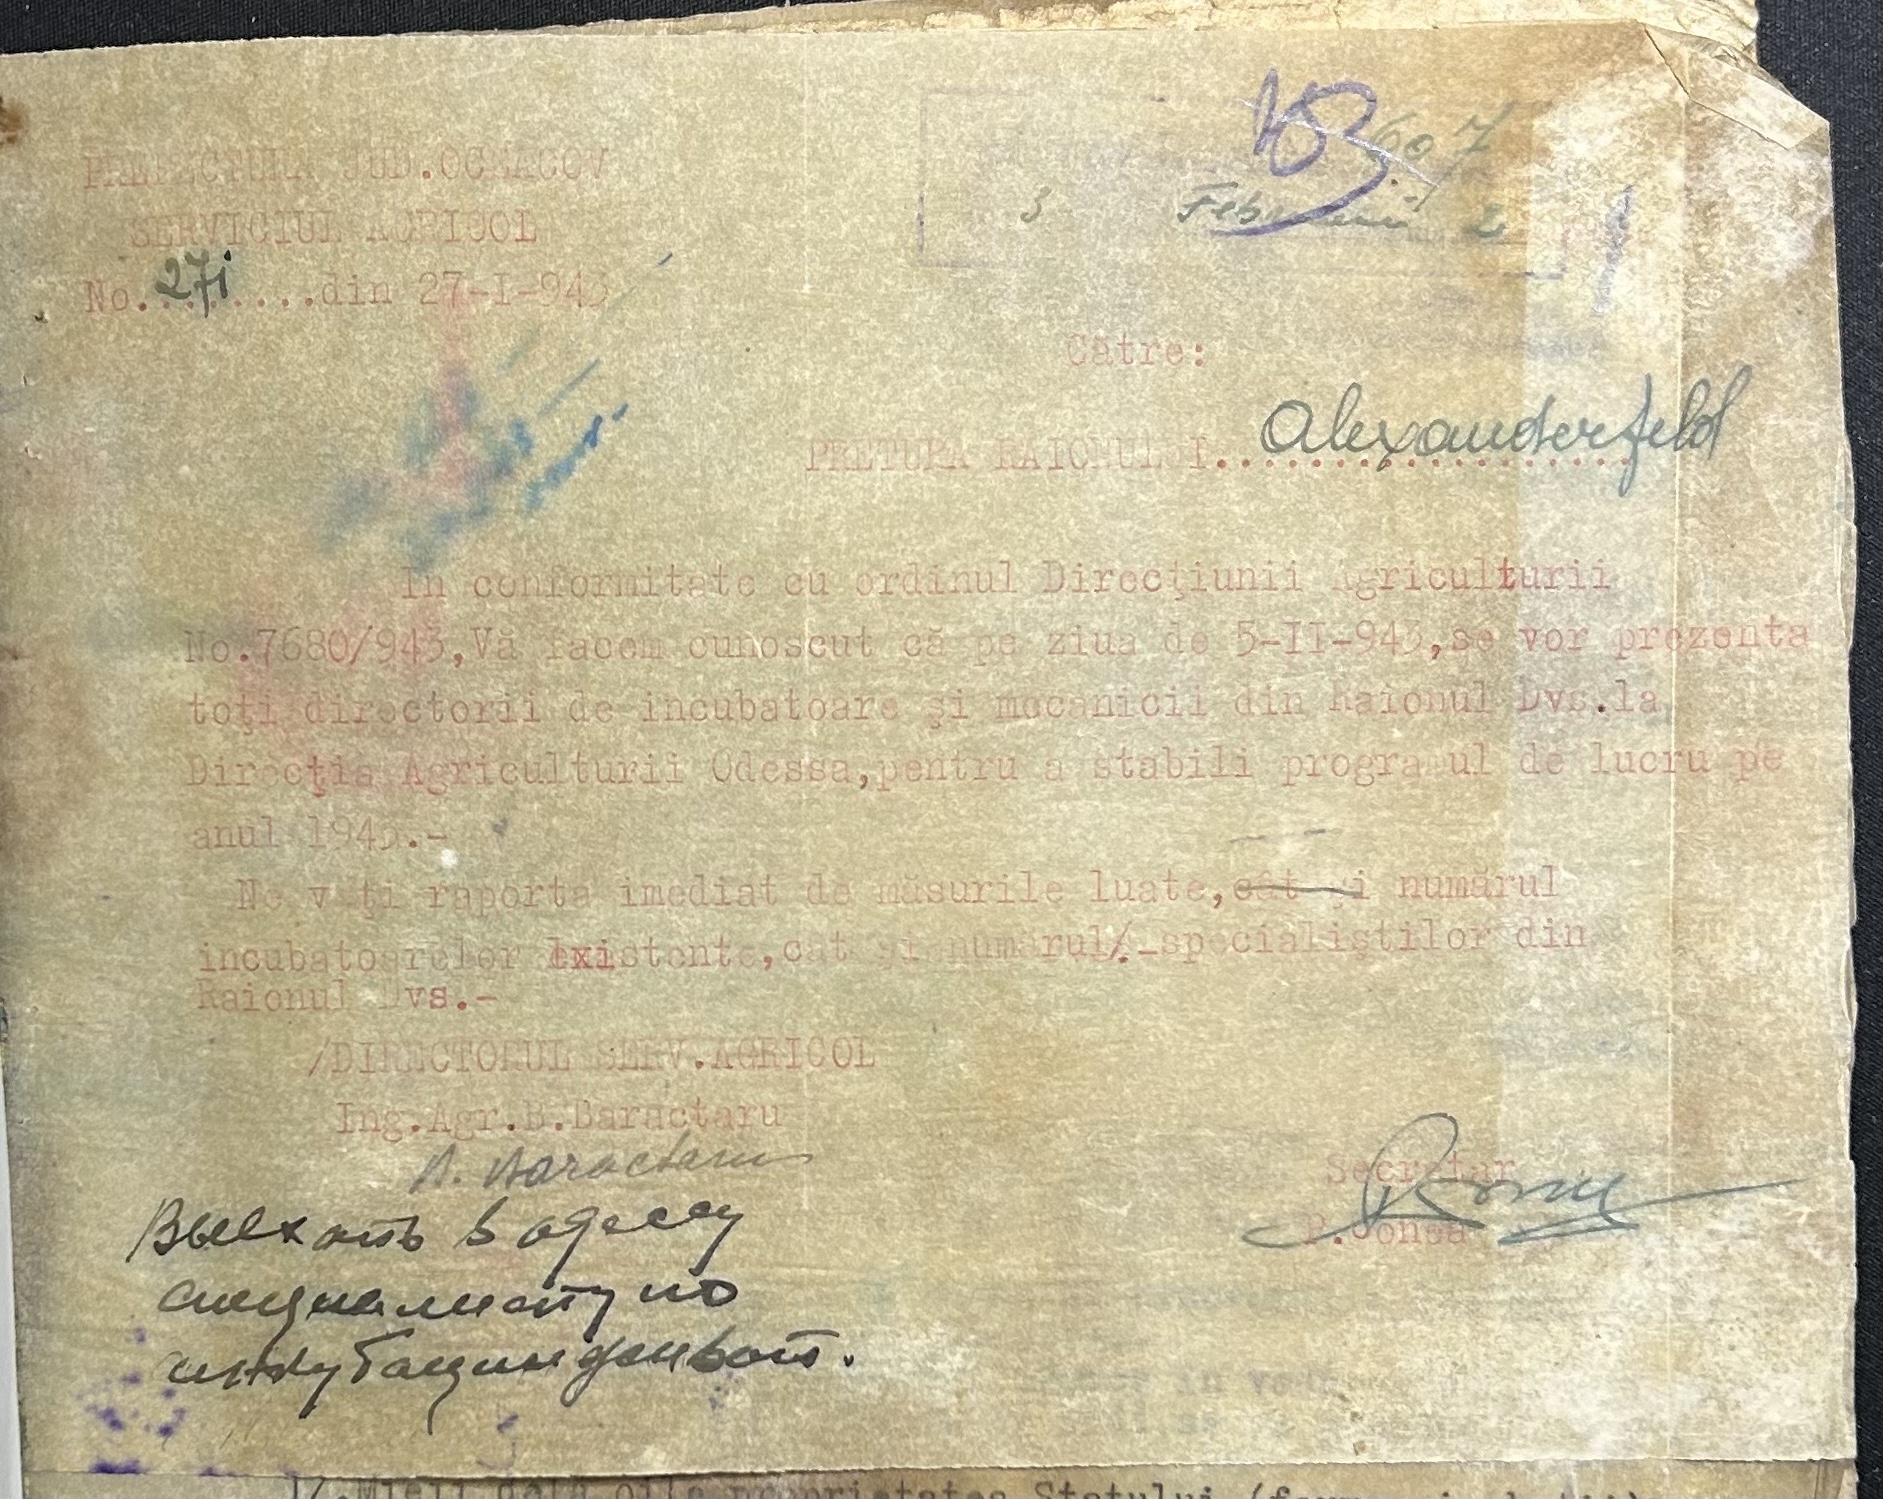 163
607
3 Februarie 2
PREFECTURA JUD.OCEACOV
SERVICIUL AGRICOL
No.271.....din 27-I-943
Către:
PRETURA RAIONULUI..Alexanderfeld
In conformitate cu ordinul Direcţiunii Agriculturii
No.7680/943,Vă facem cunoscut că pe ziua de 5-II-943,se vor prezenta
toţi directorii de incubatoare şi mecanicii din Raionul Dvs.la
Direcţia Agriculturii Odessa,pentru a stabili programul de lucru pe
anul 1943.-
Ne veţi raporta imediat de măsurile luate,cât şi numărul
incubatoarelor existente,cât şi numărul/.-specialiştilor din
Raionul Dvs.-
/DIRECTORUL SERV.AGRICOL
Ing.Agr.B.Baractaru
B. Baractaru
Secretar
P.
Выехать в одессу
специалисту по
инкубации
17.Mieii dela oile proprietatea Statului